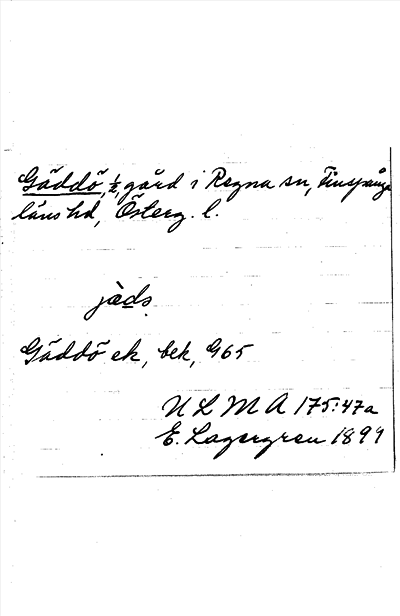 Gäddö, ½ gård i Regna sn, Finspånga
läns hd, Österg. l.
jàds.
Gäddö ek, bek, G65
U L M A 175:47a
E. Lagergren 1899